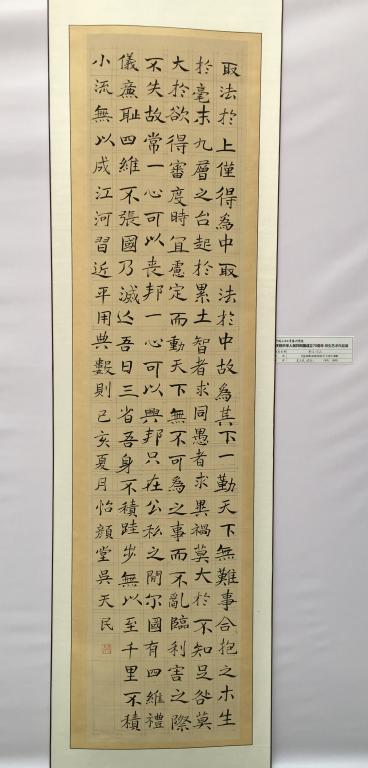 取法於上僅得為中取法於中故為其下一勤天下無難事合抱之木生
於毫末九層之台起於累土智者求同愚者求異禍莫大於不知足咎莫
大於欲得審度時宜慮定而動天下無不可為之事而不亂臨利害之際
不失故常一心可以喪邦一心可以興邦只在公私之間尔國有四維禮
儀廉耻四維不張國乃滅亡吾日三省吾身不積跬步無以至千里不積
小流無以成江河習近平用典數則己亥夏月怡顏堂吳天民